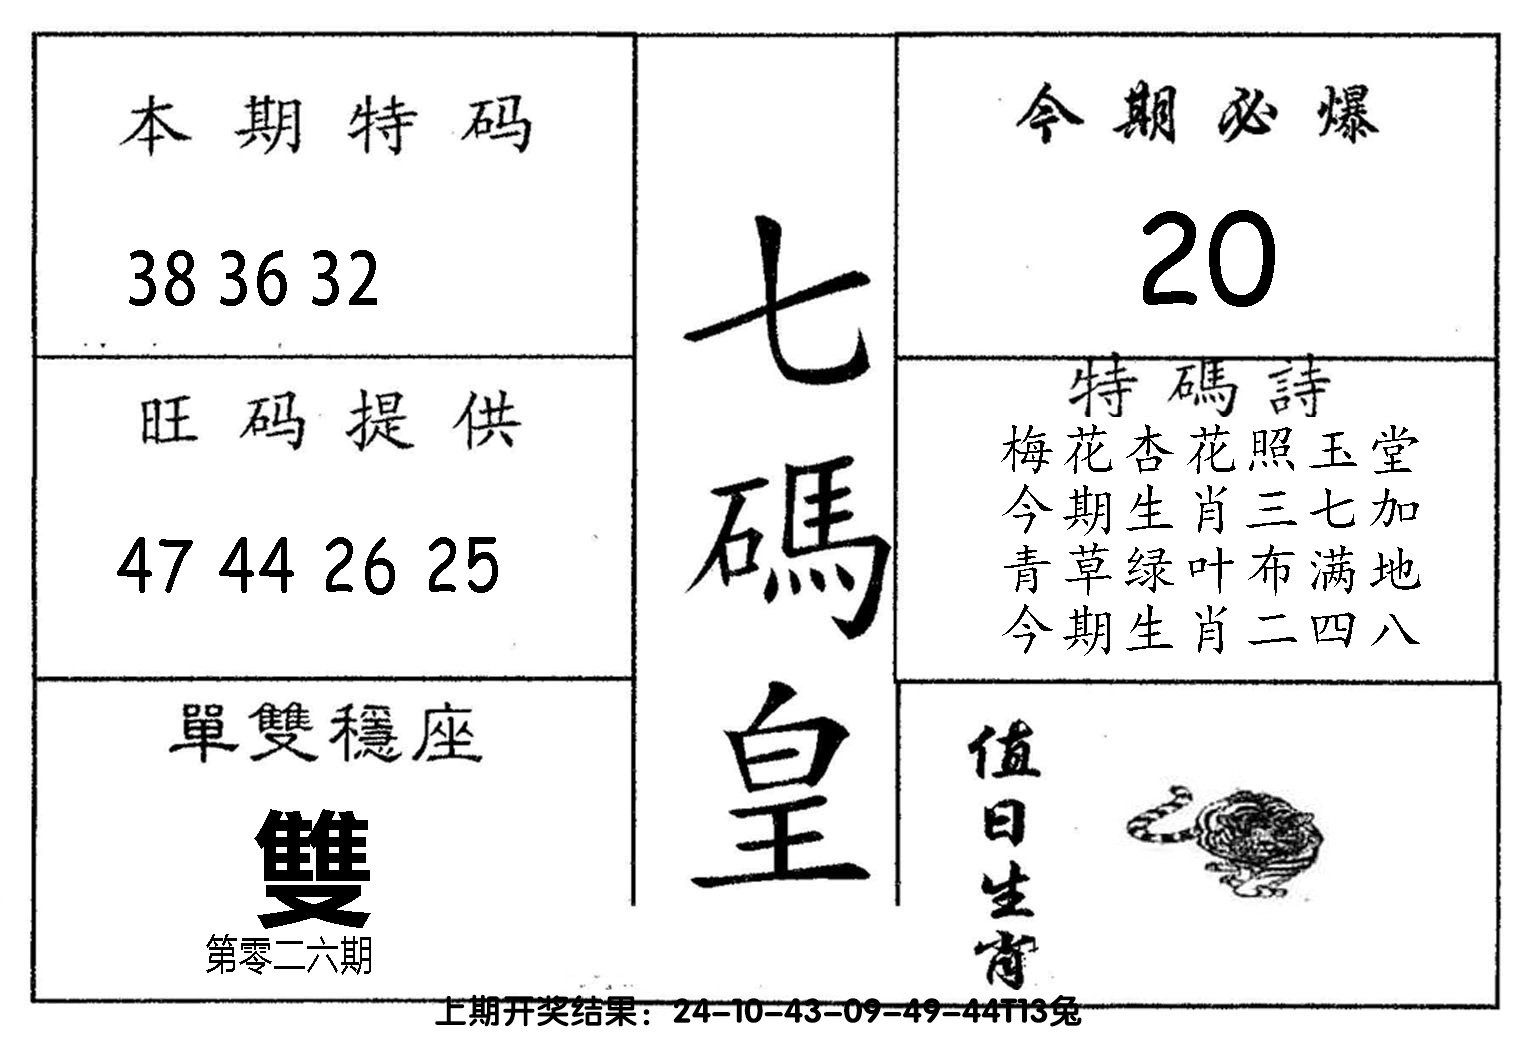 本期特码
38 36 32
旺码提供
47 44 26 25
單雙穩座
雙
第零二六期
七碼皇
今期必爆
20
特碼詩
梅花杏花照玉堂
今期生肖三七加
青草绿叶布满地
今期生肖二四八
值日生肖
上期开奖结果：24-10-43-09-49-44T13兔